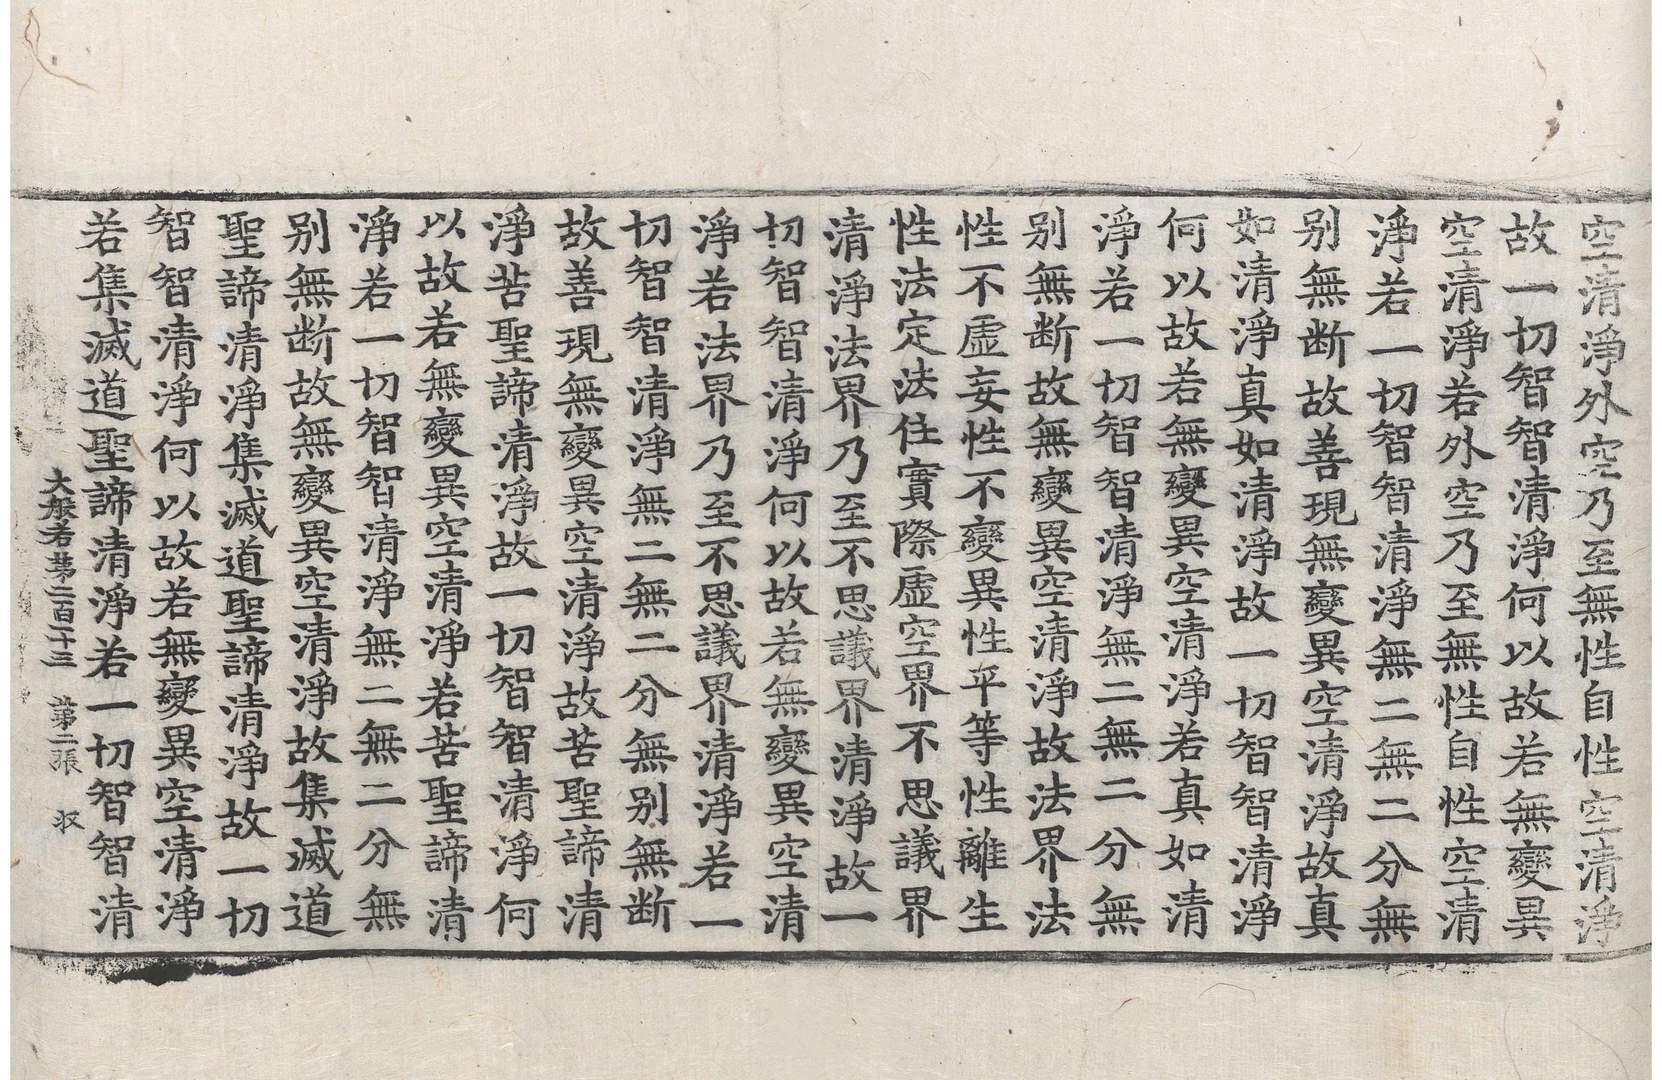 空清淨外空乃至無性自性空清淨
故一切智智清淨何以故若無變異
空清淨若外空乃至無性自性空清
淨若一切智智清淨無二無二分無
别無断故善現無變異空清淨故真
如清淨真如清淨故一切智智清淨
何以故若無變異空清淨若真如清
淨若一切智智清淨無二無二分無
别無断故無變異空清淨故法界法
性不虛妄性不變異性平等性離生
性法定法住實際虛空界不思議界
清淨法界乃至不思議界清淨故一
切智智清淨何以故若無變異空清
淨若法界乃至不思議界清淨若一
切智智清淨無二無二分無别無断
故善現無變異空清淨故苦聖諦清
淨苦聖諦清淨故一切智智清淨何
以故若無變異空清淨若苦聖諦清
淨若一切智智清淨無二無二分無
别無断故無變異空清淨故集滅道
聖諦清淨集滅道聖諦清淨故一切
智智清淨何以故若無變異空清淨
若集滅道聖諦清淨若一切智智清
大般若第二百十三 第二張 収